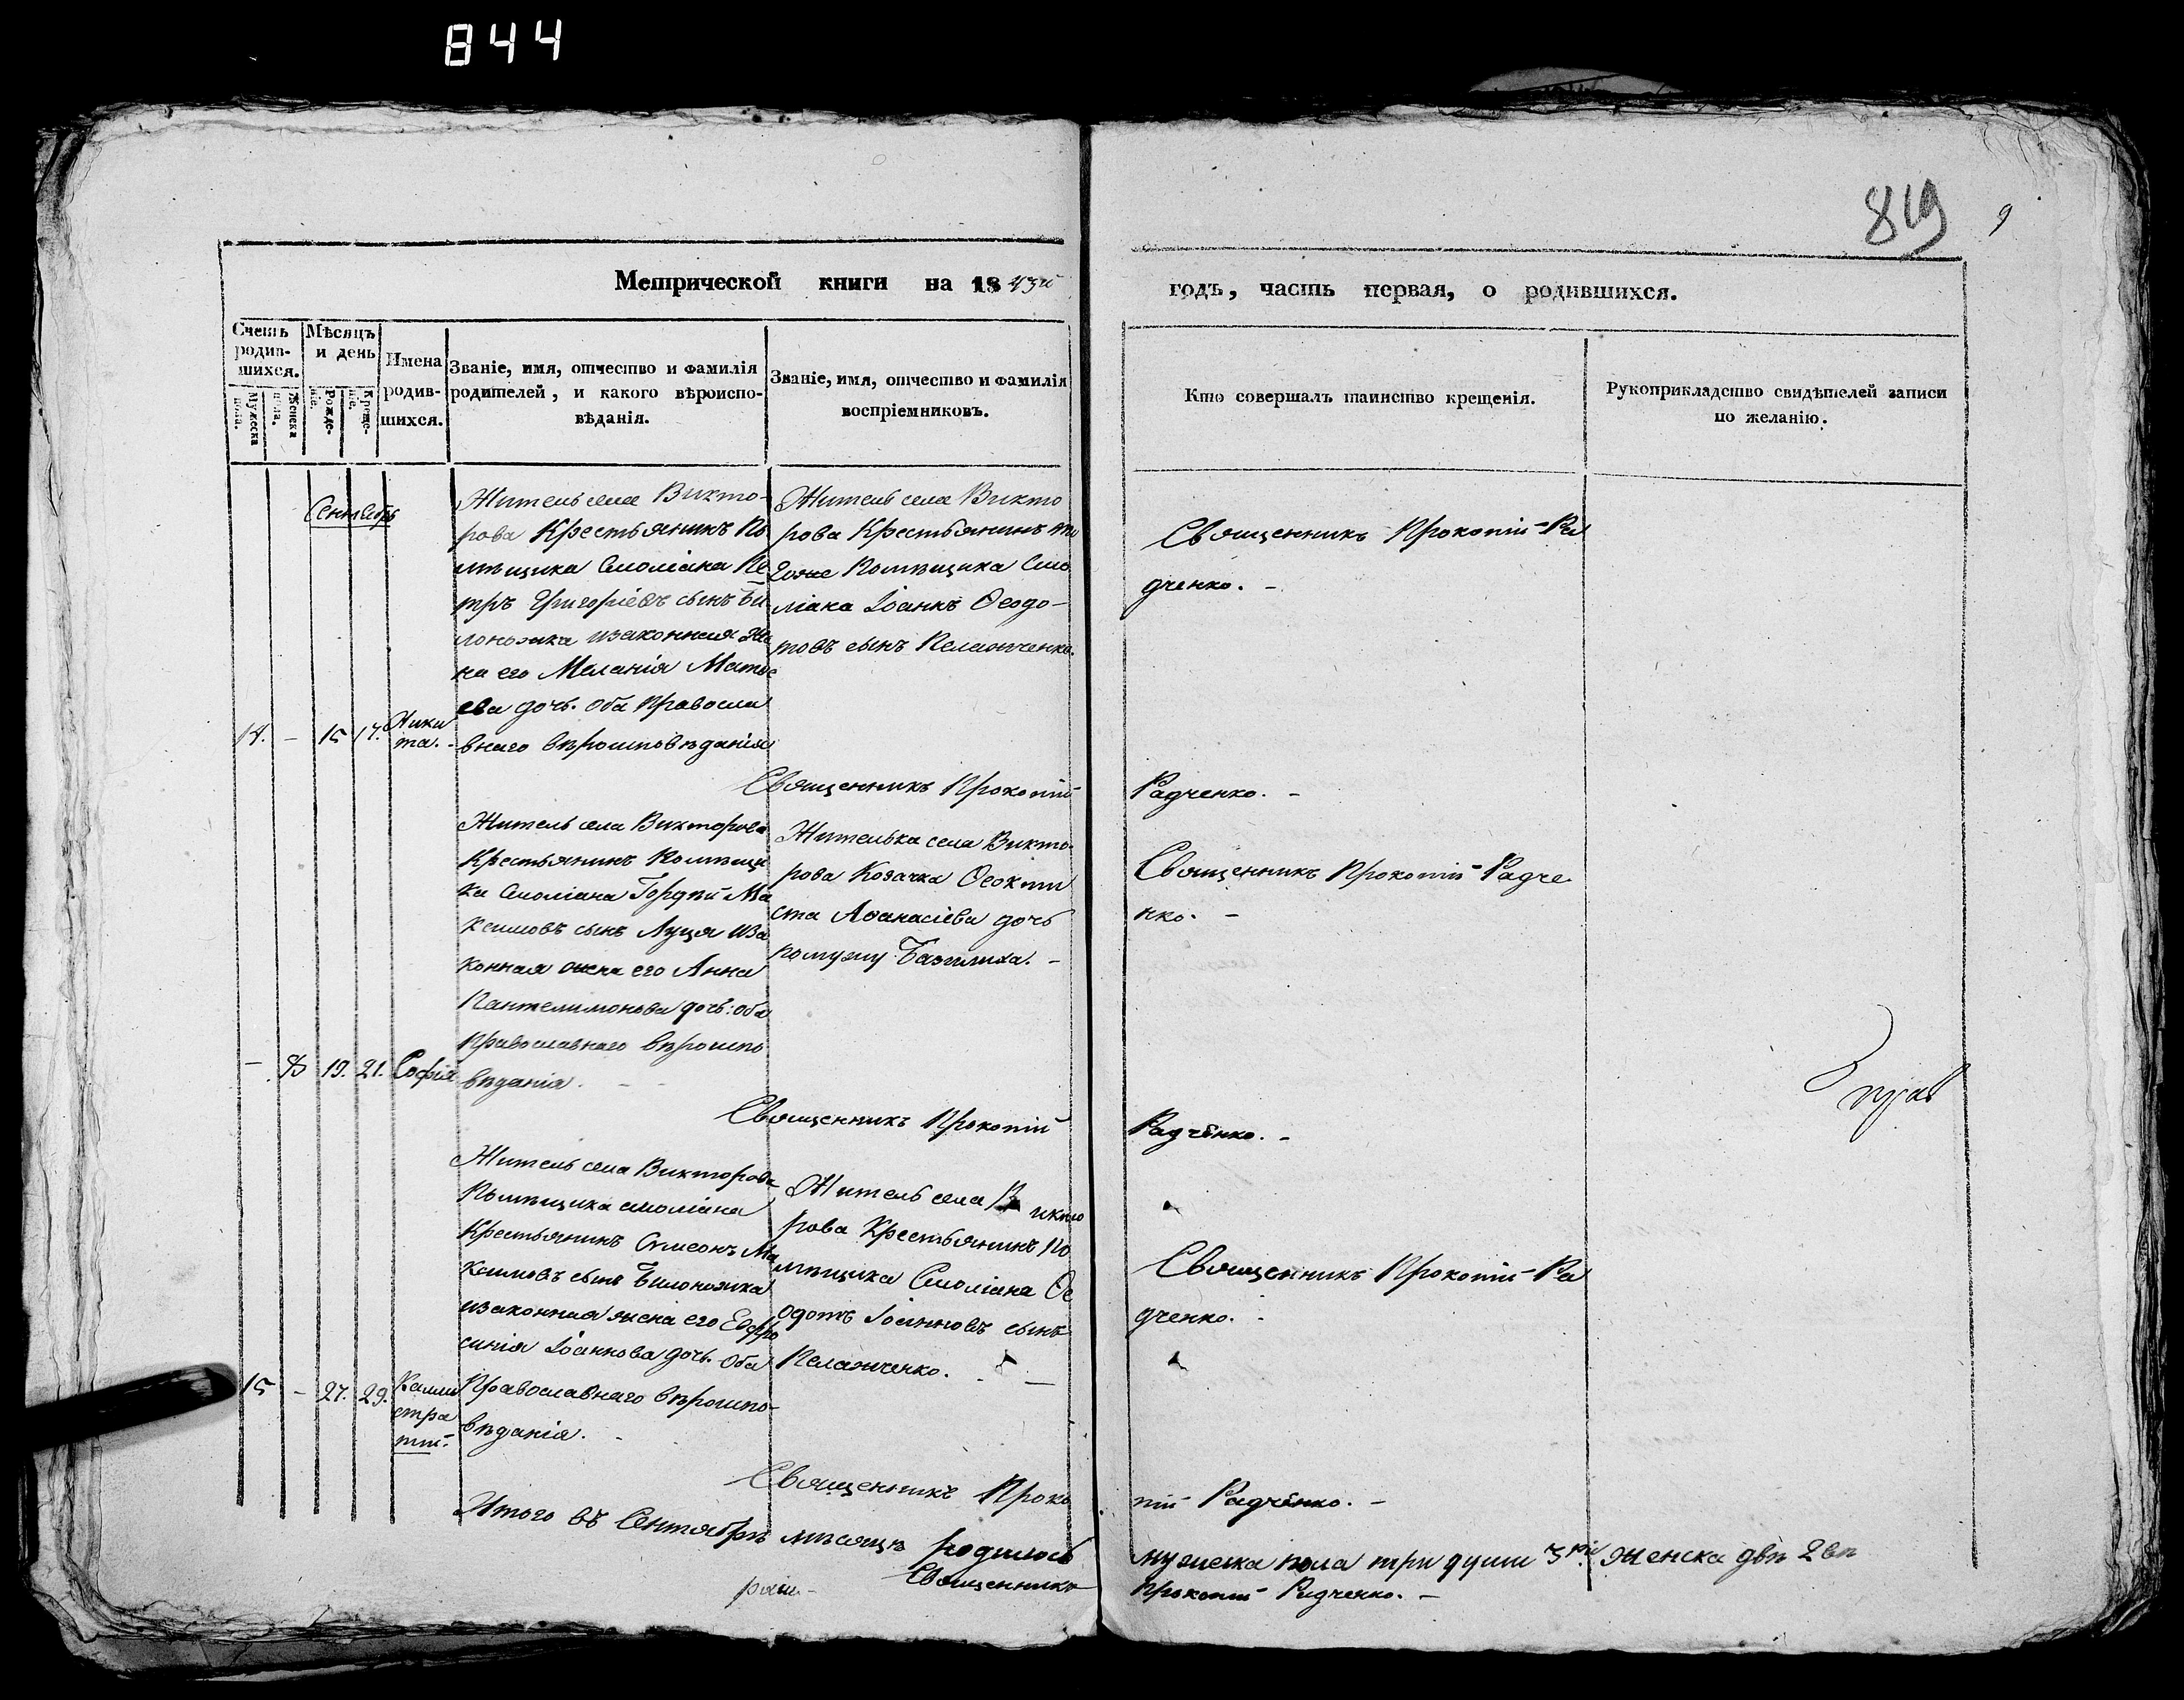 844
819
9
Метрической книги на 1843й
годъ, часть первая, о родившихся.
Счетъ родив-шихся.
Мужеска пола.
Женска пола.
Мѣсяцъ и день
Рожде-ніе.
Креще-ніе.
Имена родив-шихся.
Званіе, имя, отчество и фамилія
родителей, и какого вѣроиспо-
вѣданія.
Званіе, имя, отчество и фамилія
воспріемниковъ.
Кто совершалъ таинство крещенія.
Рукоприкладство свидѣтелей записи
по желанію.
Сентябрь
14. - 15 17. Ники
та. -
Житель села Викто-
рова Крестьянинъ По
мѣщика Смоліана Пе
тръ Григоріевъ сынъ Би
лоножка изаконная Же
на его Меланія Матѳе
ева дочь. Оба Правосла
внаго вѣроисповѣданія
Житель села Викто
рова Крестьянинъ то
гоже Помѣщика Смо
ліана Іоаннъ Ѳеодо-
товъ сынъ Пелажченко.
Священникъ Прокопій Ра
дченко. -
Священникъ Прокопій
Радченко. -
- 8 19. 21. Софія
Житель села Викторова
Крестьянинъ Помѣщи
ка Смоліана Гордѣй Ма
ксимовъ сынъ Луця иза
конная жена его Анна
Пантелимонова дочь: оба
Православнаго вѣроиспо
вѣданія. - -
Жителька села Викто-
рова Козачка Ѳеокти
ста Аѳанасіева дочь
помужу Базилиха. -
Священникъ Прокопій Радче
нко. -
Священникъ Прокопій
Радченко. -
15 - 27. 29. Калли
стра
тій.
Житель села Викторова
Помѣщика смоліана
Крестьянинъ Сѵмеонъ Ма
ксимовъ сынъ Билоножка
изаконная жена его Евфро
синія Іоаннова дочь. Оба
Православнаго вѣроиспо-
вѣданія. -
Житель села Викто
рова Крестьянинъ По
мѣщика Смоліана Ѳе
одотъ Іоанновъ сынъ
Пелажченко. - -
Священникъ Прокопій Ра
дченко. -
Священникъ Проко
пій Радченко. -
Итого въ Сентябрѣ мѣсяцѣ родилось
мужеска пола три души 3ри женска двѣ 2вѣ
Священникъ
Прокопій Радченко. -